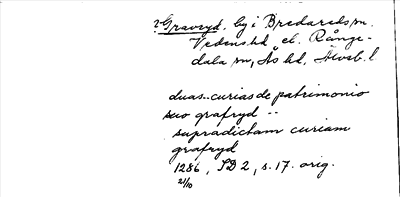 ? Gravryd. by i Bredareds sn.
Vedens hd el. Rånge-
dala sn, Ås hd, Älvsb. l
duas.. curias de patrimonio
suo grafryd ..
supradictam curiam
grafryd
1286, SD 2, s. 17. orig.
21/10